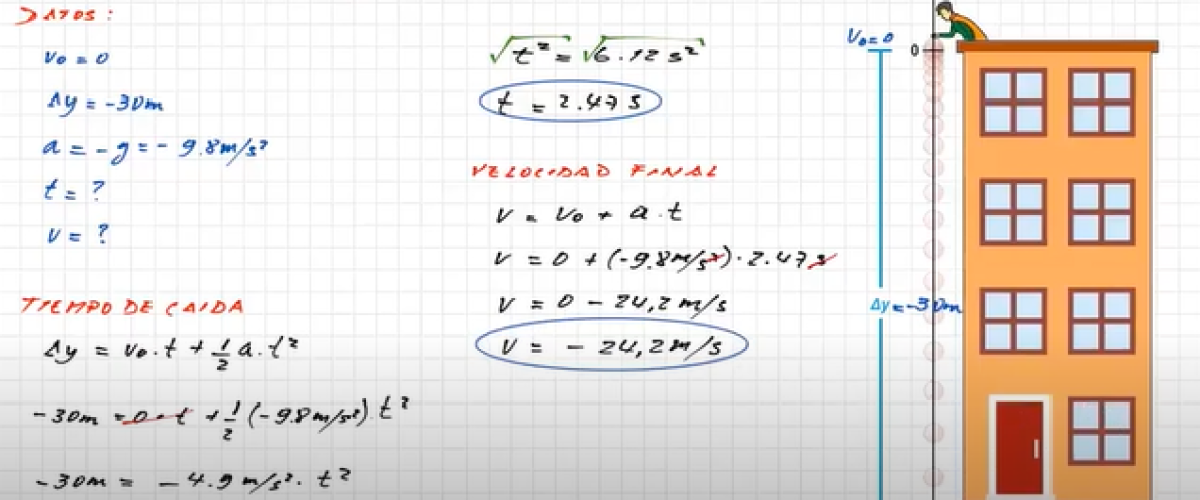 DATOS:
v₀ = 0
Δy = -30m
a = -g = - 9.8m/s²
t = ?
v = ?
TIEMPO DE CAIDA
Δy = v₀.t + 1/2 a.t²
-30m = 0.t + 1/2 (-9.8m/s²) t²
-30m = - 4.9 m/s². t²
√t² = √6.12 s²
t = 2.47 s
VELOCIDAD FINAL
v = v₀ + a.t
v = 0 + (-9.8m/s²).2.47s
v = 0 - 24,2 m/s
v = - 24,2 m/s
V₀= 0
0
Δy = -30m